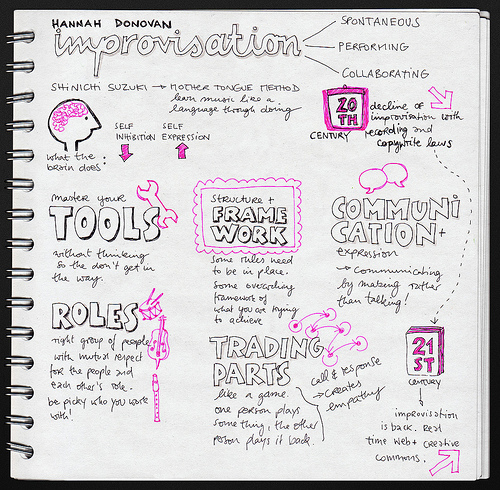 HANNAH DONOVAN
improvisation
SPONTANEOUS
PERFORMING
COLLABORATING
SHINICHI SUZUKI → MOTHER TONGUE METHOD
learn music like a
language through doing
what the
brain does:
SELF
INHIBITION
SELF
EXPRESSION
20
TH
CENTURY
decline of
improvisation with
recording and
copywrite laws
master your
TOOLS
without thinking
so the don't get in
the way.
structure +
FRAME
WORK
some rules need
to be in place.
some overarching
framework of
what you are trying
to achieve
COMMUNI
CATION +
expression
→ communicating
by making rather
than talking!
ROLES
right group of people
with mutual respect
for the people and
each other's role.
be picky who you work
with!
TRADING
PARTS
like a game.
one person plays
something, the other
person plays it back.
call & response
→ creates
empathy
21
ST
CENTURY
improvisation
is back. Real
time web + creative
commons.